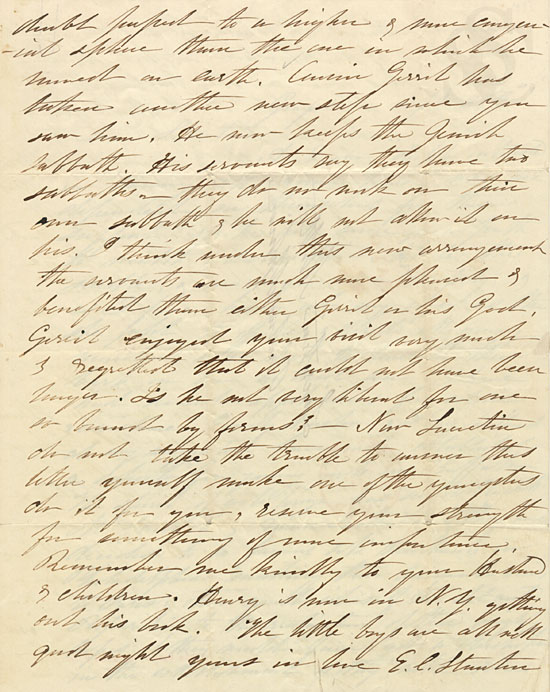 doubt perfect to a higher & more congen-
-ial sphere than the one in which he
moved on earth. Cousin Gerrit has
taken another new step since you
saw him. He now keeps the Jewish
Sabbath. His servants say they have two
sabbaths – they do no work on their
own sabbath & he will not allow it on
his. I think under this new arrangement
the servants are much more pleased &
benefited than either Gerrit or his God.
Gerrit enjoyed your visit very much
& regretted that it could not have been
longer. Is he not very liberal for one
so bound by forms? – Now Lucretia
do not take the trouble to answer this
letter yourself make one of the youngsters
do it for you, reserve your strength
for something of more importance.
Remember me kindly to your Husband
& children. Henry is now in N.Y. getting
out his book. The little boys are all well
good night yours in love E. C. Stanton